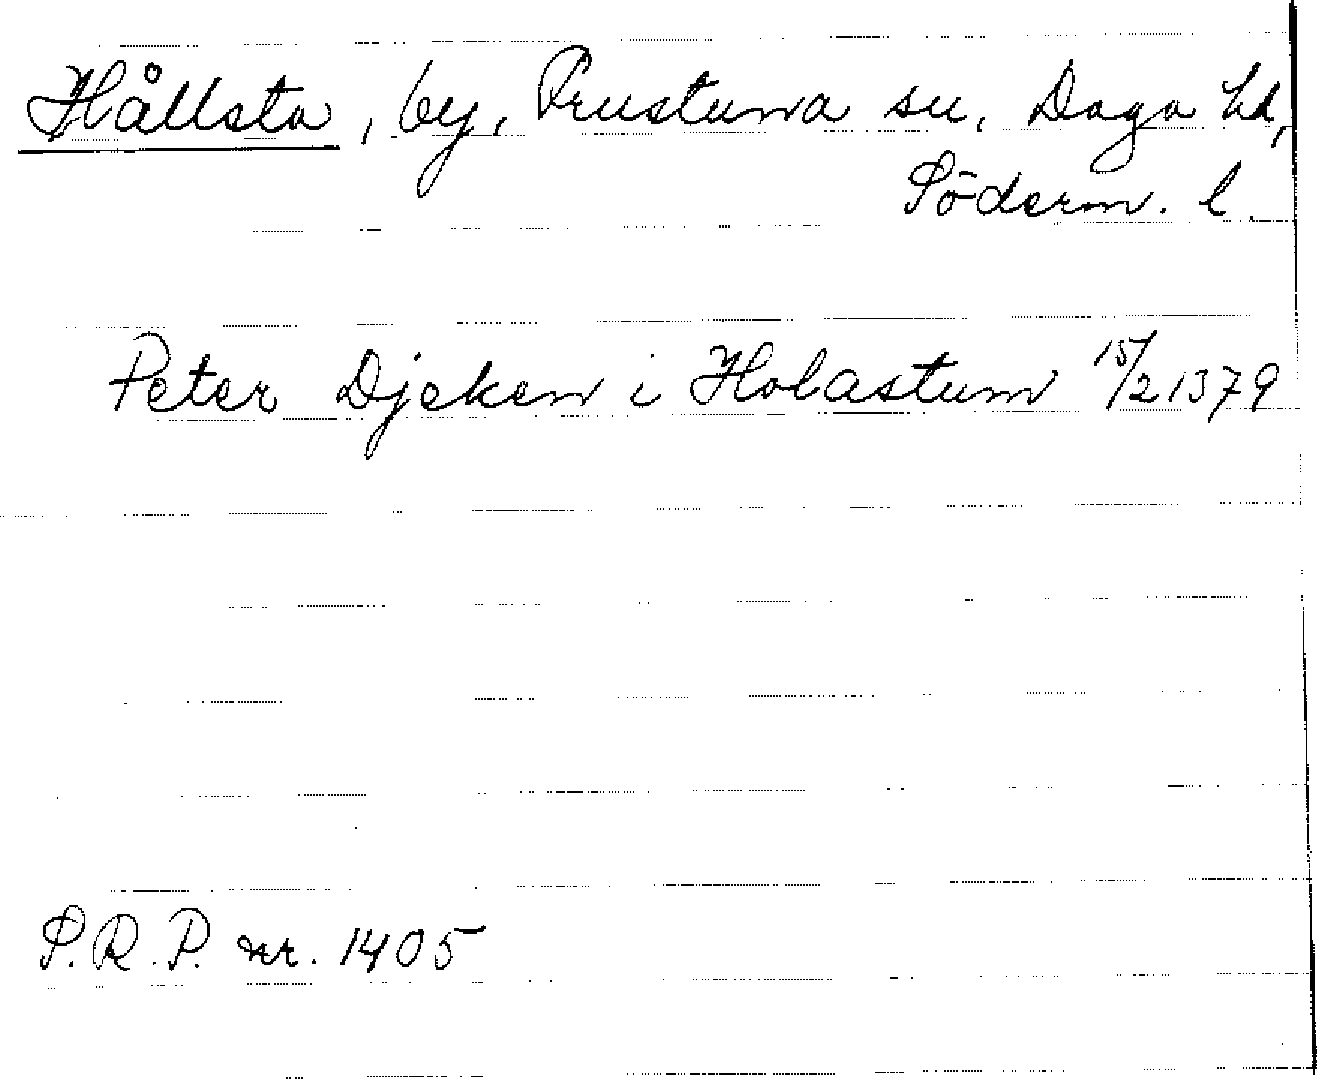 Hållsta, by, Frustuna sn, Daga hd,
Söderm. l.
Peter Djeken i Holastum 15/2 1379
S.R.P. nr. 1405